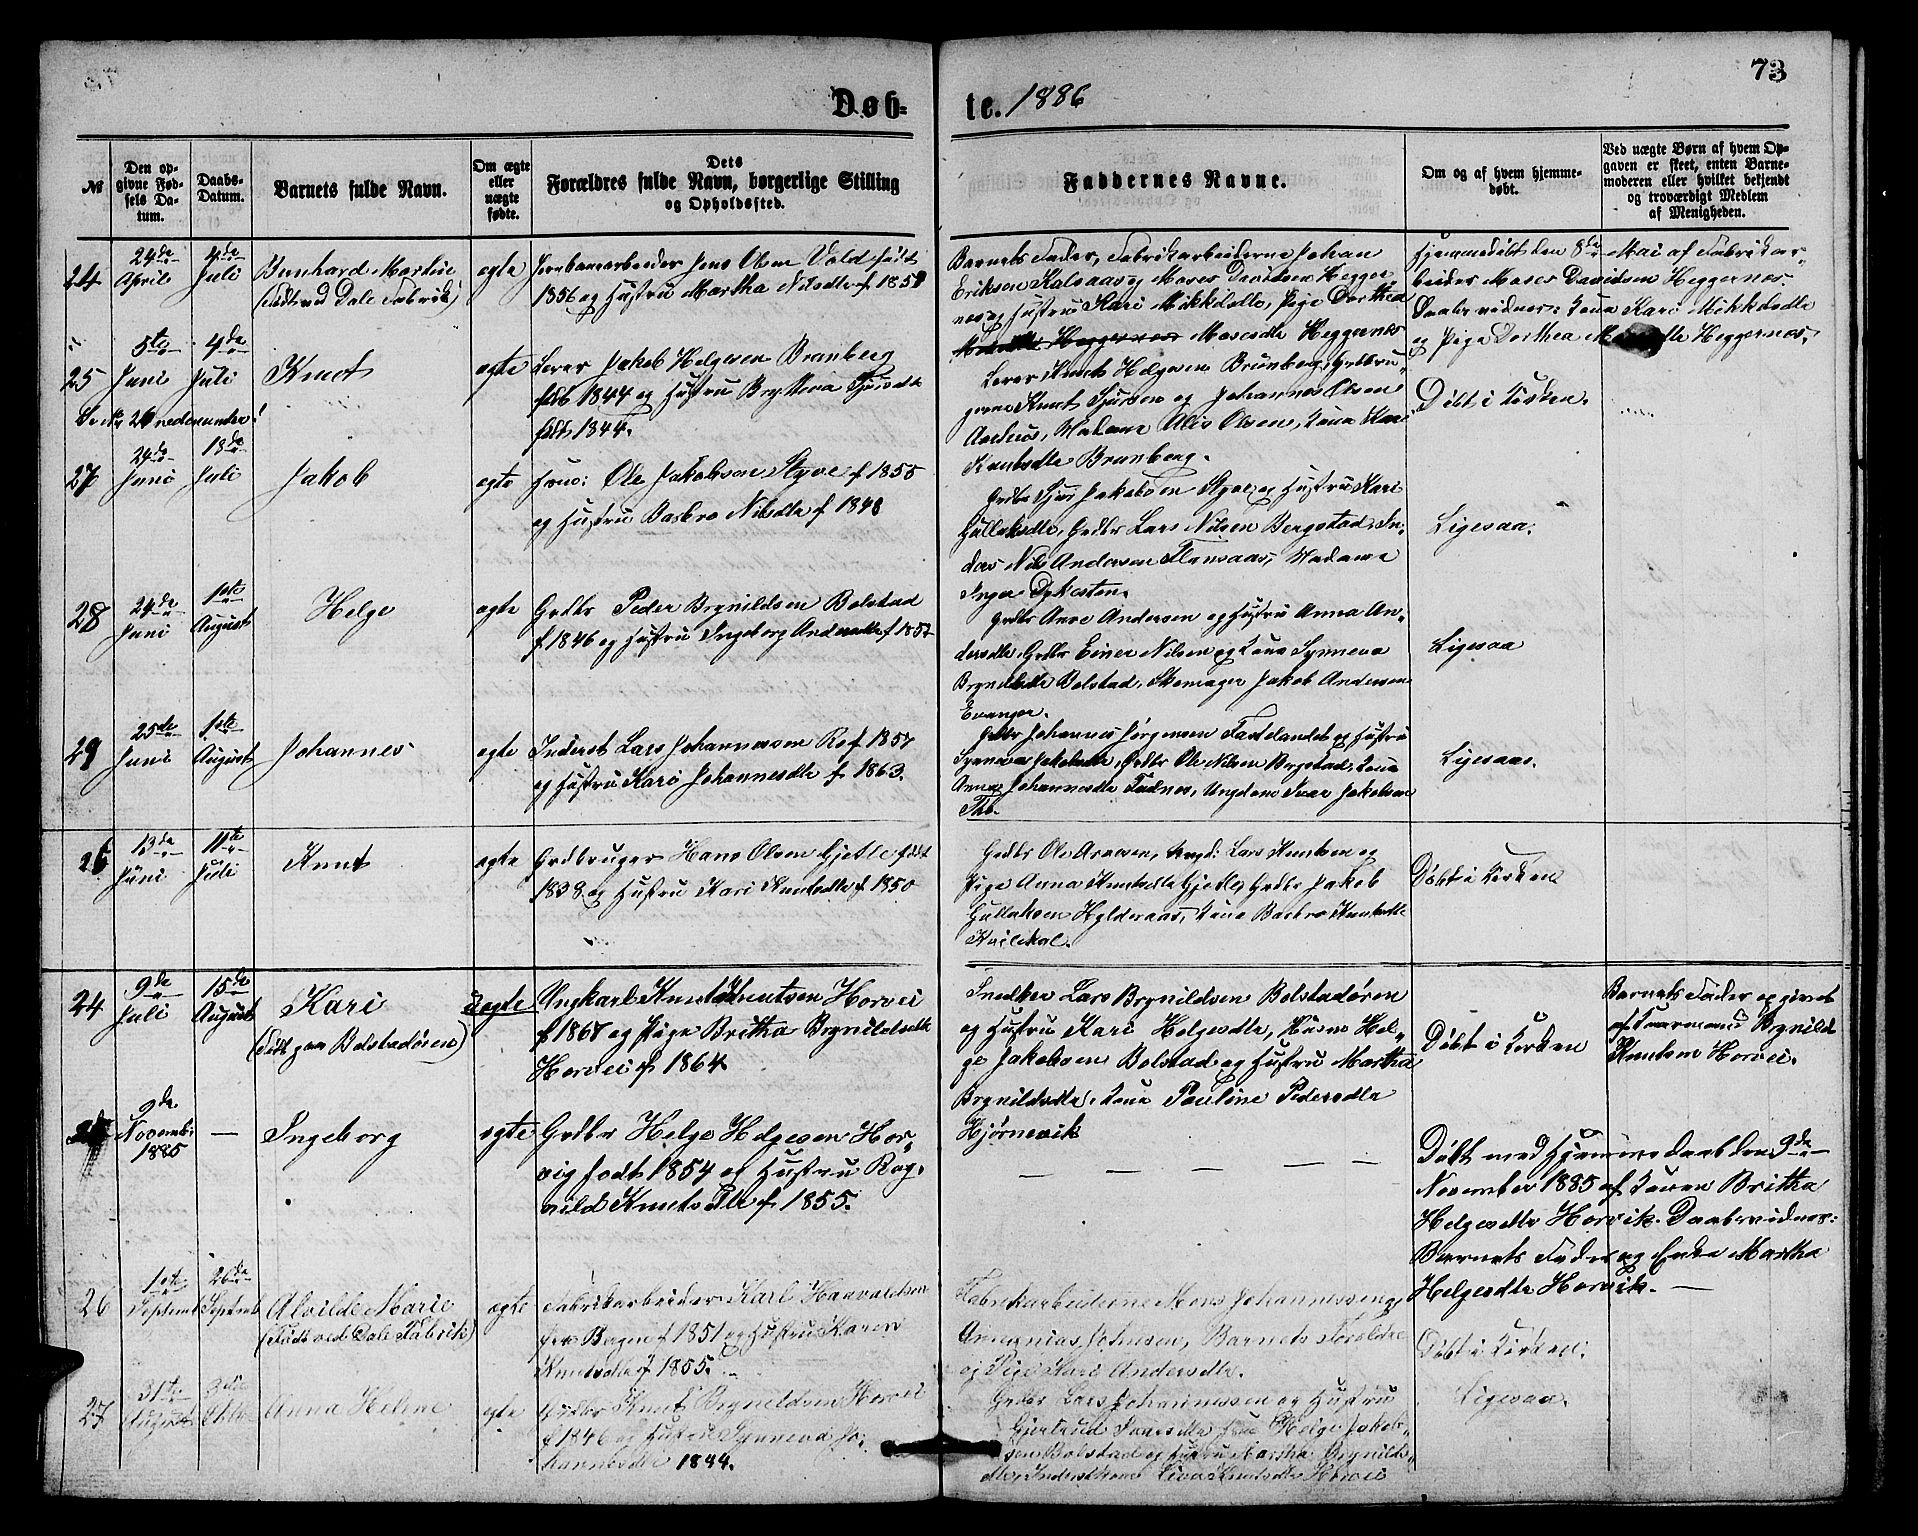 73
Døb=
te. 1886
№
Den op-
givne Fød-
sels Da-
tum.
Daabs-
Datum.
Barnets fulde Navn.
Om ægte
eller
uægte
fødte.
Dets
Forældres fulde Navn, borgerlige Stilling
og Opholdssted.
Faddernes Navne.
Om og af hvem hjemme-
døbt.
Ved uægte Børn af hvem Op-
gaven er skeet, enten Barne-
moderen eller hvilket bekjendt
og troværdigt Medlem
af Menigheden.
24
24de
April
4de
Juli
Bernhard Martin
(Født ved Dale Fabrik)
ægte
Jernbanearbeider Jens Olsen Vold født
1856 og Hustru Martha Nilsdtr f
Barnets Fader, Fabrikarbeiderne Johan
Eriksen Kalsaas og Moses Davidsen Hegger
nes og Hustru Kari Mikkelsdtr, Pige Dorthea
Mosesdtr Heggernes
Hjemmedøbt den 8de Mai af Fabrikar-
beider Moses Davidsen Heggernes.
Daabsvidner: Kona Kari Mikkelsdtr
og Pige Dorthea Heggernes.
25
5te
Juni
4de
Juli
Knut
ægte
Lærer Jakob Helgesen Brunborg
født 1844 og Hustru Brytteva Sjursdtr
født 1844.
Lærer Knut Helgesen Brunborg, Grdbru-
gerne Knut Sjursen og Johannes Olsen
Aarhus, Madame Alis Olsen, Kona Kari
Knutsdtr Brunborg.
Døbt i Kirken.
Se № 26 nedenunder!
27
24de
Juni
18de
Juli
Jakob
ægte
Huus: Ole Jakobsen Styve f 1855
og Hustru Barbro Nilsdtr f 1848
Grdbr Sjur Jakobsen Styve og Hustru Kari
Gullaksdtr, Grdbr Lars Nilsen Bergstad, In-
derst Nils Andersen Flansaas, Madame
Inger Dyvesten.
Ligesaa.
28
24de
Juni
1ste
August
Helge
ægte
Grdbr Peder Brynildsen Bolstad
f 1846 og Hustru Ingeborg Andersdtr f 1852
Grdbr Arne Andersen og Hustru Anna An-
dersdtr, Grdbr Einer Nilsen og Kona Synneva
Brynildsdtr Bolstad, Skomager Jakob Andersen
Evanger.
Ligesaa
29
25de
Juni
1ste
August
Johannes
ægte
Inderst Lars Johannessen Ro f 1857
og Hustru Kari Johannesdtr f 1863.
Grdbr Johannes Jørgensen Fastelandet og Hustru
Synneva Jakobsdtr, Grdbr Ole Nilsen Bergstad, Kona
Anna Johannesdtr Fadnes, Ungdom Ivar Jakobsen
Ligesaa.
26
13de
Juni
11te
Juli
Knut
ægte
Grdbruger Hans Olsen Gjetle født
1838 og Hustru Kari Knutsdtr f 1850
Grdbr Ole Arnesen, Ungd: Lars Knutsen og
Pige Anna Knutsdtr Gjetle, Grdbr Jakob
Gullaksen Hyldraas, Kona Barbro Knutsdtr
Kvilekval.
Døbt i Kirken
24
9de
Juli
15de
August
Kari
(Født paa Bolstadøren)
uægte
Ungkarl Knut Knutsen Horvei
f 1867 og Pige Britha Brynildsdtr
Horvei f 1864.
Snedker Lars Brynildsen Bolstadøren
og Hustru Kari Helgesdtr, Husm Hel-
ge Jakobsen Bolstad og Hustru Martha
Brynildsdtr, Kona Pauline Pedersdtr
Hjørnevik
Døbt i Kirken
Barnets Fader opgivet
af Kaarmand Brynild
Knutsen Horvei.
9de
Novemb:
1885
—
Ingeborg
ægte
Grdbr Helge Helgesen Hor-
vig født 1854 og Hustru Rag-
nild Knutsdtr f 1855.
— — — — — —
Døbt med Hjemmedaab den 9de
November 1885 af Konen Britha
Helgesdtr Horvik. Daabsvidner:
Barnets Fader og Enke Martha
Helgesdtr Horvik. —
26
1ste
Septemb
26de
Septemb
Alvilde Marie
(Født ved Dale Fabrik)
ægte
Fabrikarbeider Karl Haavaldsen
fra Bergen f 1851 og Hustru Karen
Knutsdtr f 1855.
Fabrikarbeiderne Mons Johannessen og
Annanias Johnsen, Barnets Forældre
og Pige Kari Andersdtr.
Døbt i Kirken.
27
31te
August
3die
Oktbr
Anna Helene
ægte
Grdbr Knut Brynildsen Horvei
f 1846 og Hustru Synneva Jo-
hannesdtr 1844.
Grdbr Lars Johannessen og Hustru
Gjertrud Ivarsdtr, Helge Jakob-
sen Bolstad og Hustru Martha Brynilds-
dtr, Inderstkone Knutsdtr Horvei
Ligesaa.